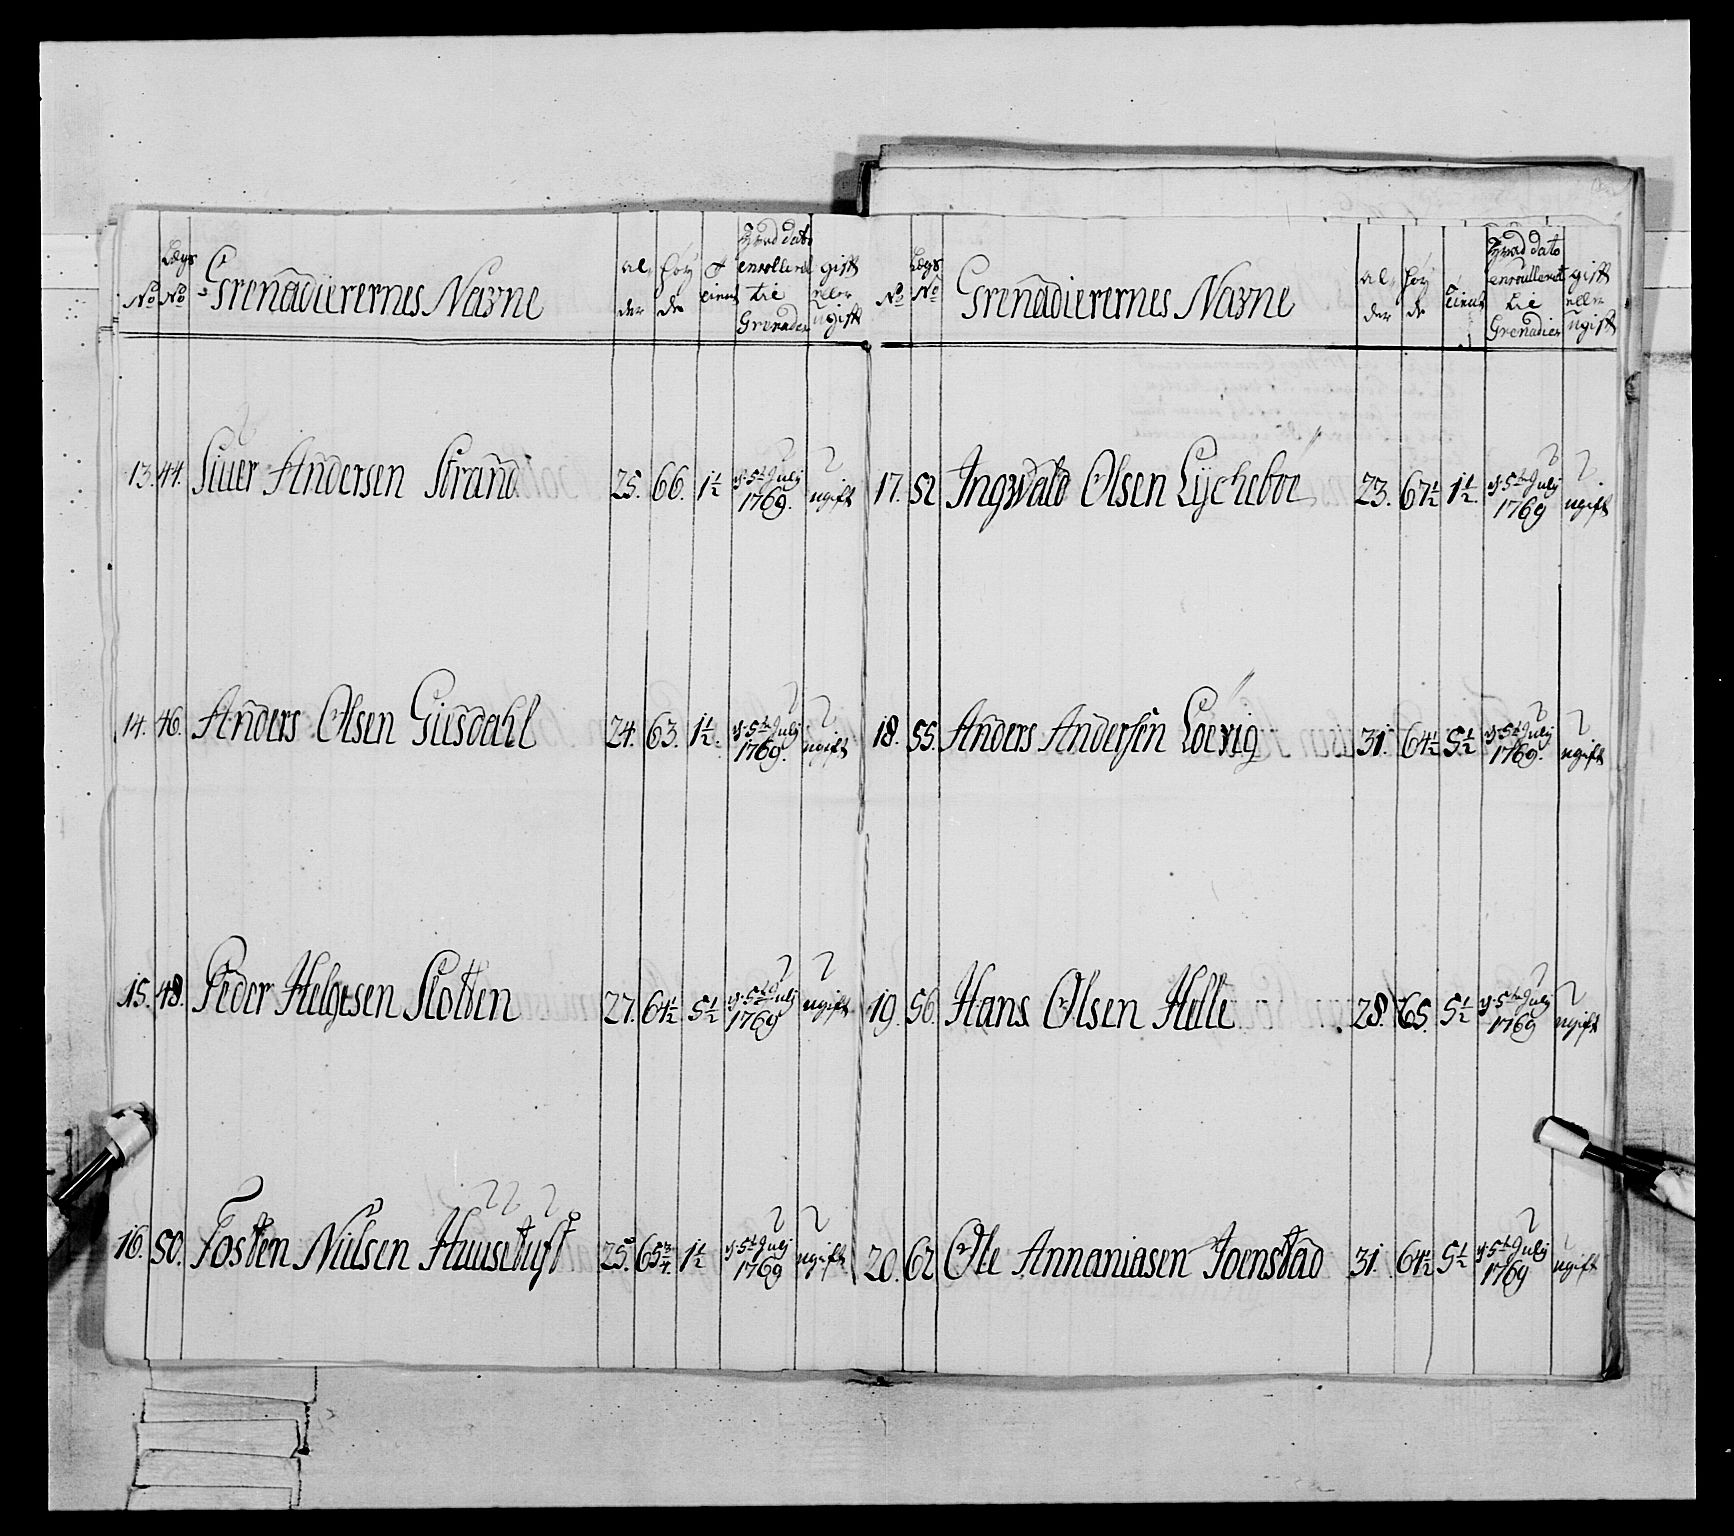 No Lægs No Grenadierernes Navne al, der höy de tienst Hvad dato enrolleret til Grenader gift eller ugift
13. 44. Siuer Andersen Strand 25. 66. 1½ d. 5t July 1769. ugift
14. 46. Anders Olsen Giisdahl 24. 63. 1½. d. 5t July 1769. ugift
15. 48. Peder Helgesen Slotten 27. 64½ 5½ d. 5t July 1769 ugift
16. 50. Tosten Nilsen Huusetuft 25. 65¾. 1½ d. 5t July 1769 ugift
No Lægs No Grenadierernes Navne al, der höy de tienst Hvad dato enroulleret til Grenadier gift eller ugift
17. 52 Ingwald Olsen Lycheboe 23. 67½ 1½. d. 5t July 1769 ugift
18. 55. Anders Andersen Loevig 31. 64½ 5½ d. 5t July 1769. ugift
19. 56. Hans Olsen Helle 28. 65. 5½ d. 5t July 1769 ugift
20. 62 Ole Annaniasen Joenstad 31. 64½ 5½ d. 5t July 1769 ugift